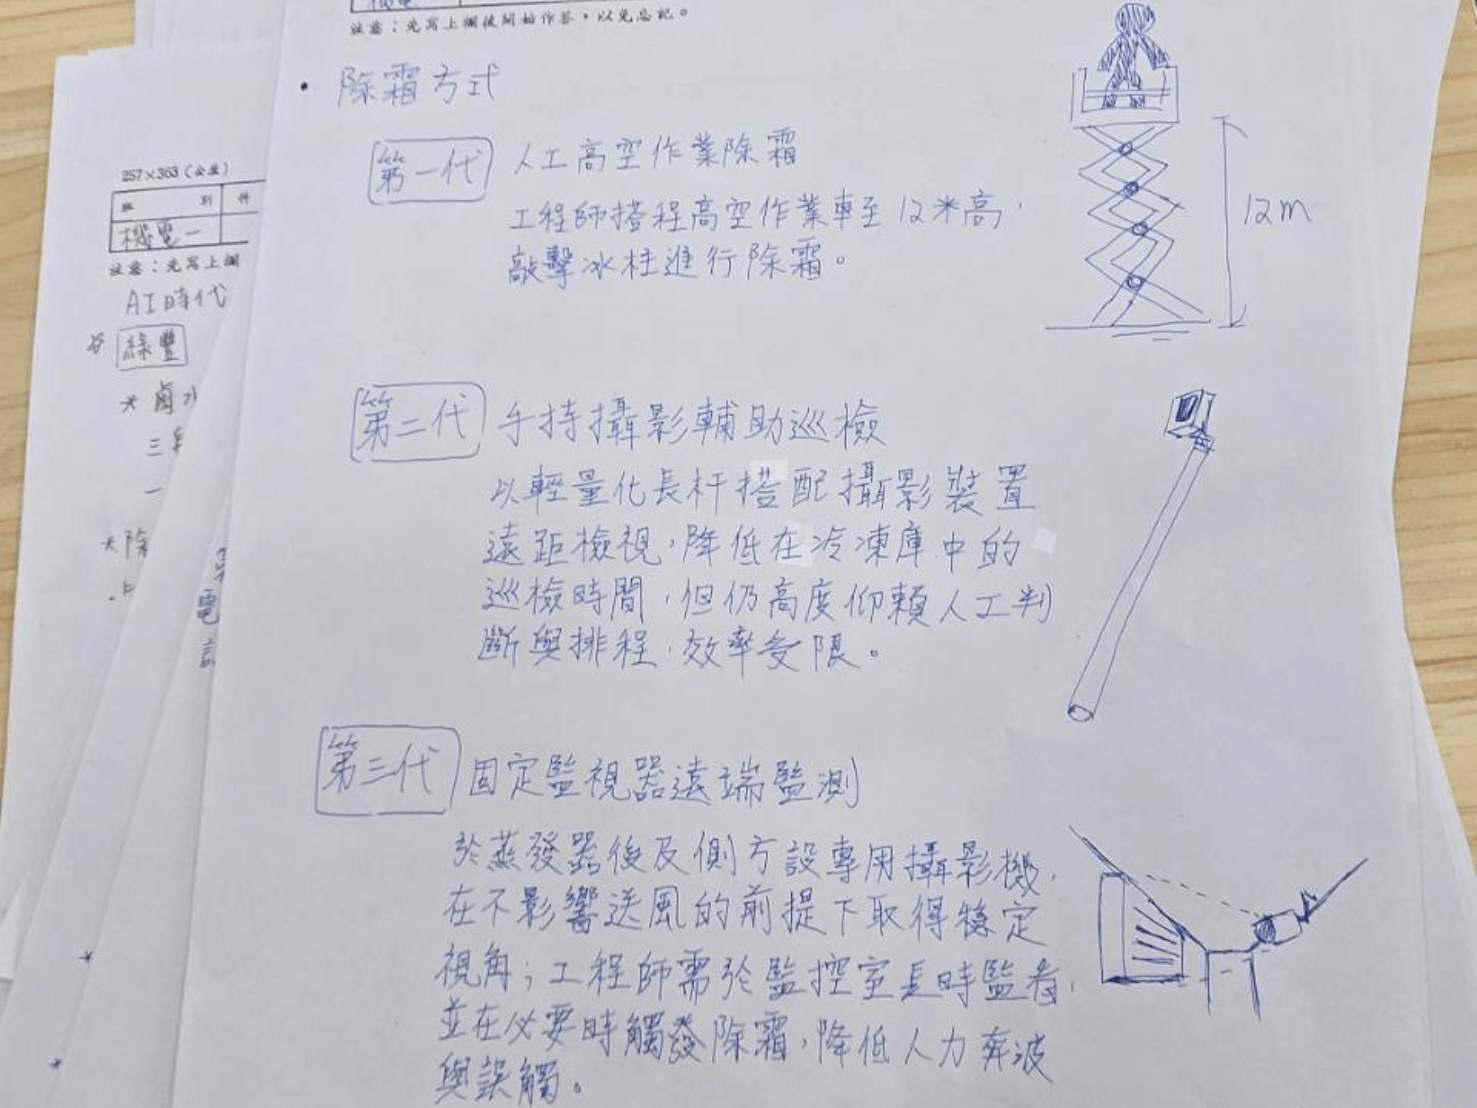 注意：先寫上欄後開始作答，以免忘記。
• 除霜方式
第一代 人工高空作業除霜
工程師搭程高空作業車至12米高，
敲擊冰柱進行除霜。
12m
第二代 手持攝影輔助巡檢
以輕量化長杆搭配攝影裝置
遠距檢視，降低在冷凍庫中的
巡檢時間，但仍高度仰賴人工判
斷與排程，效率受限。
第三代 固定監視器遠端監測
於蒸發器後及側方設專用攝影機，
在不影響送風的前提下取得穩定
視角；工程師需於監控室長時監看，
並在必要時觸發除霜，降低人力奔波
與誤觸。
257×363（公釐）
班 別
機電一
注意：先寫上欄
AI時代
* 鹵水
三
一
*除
電